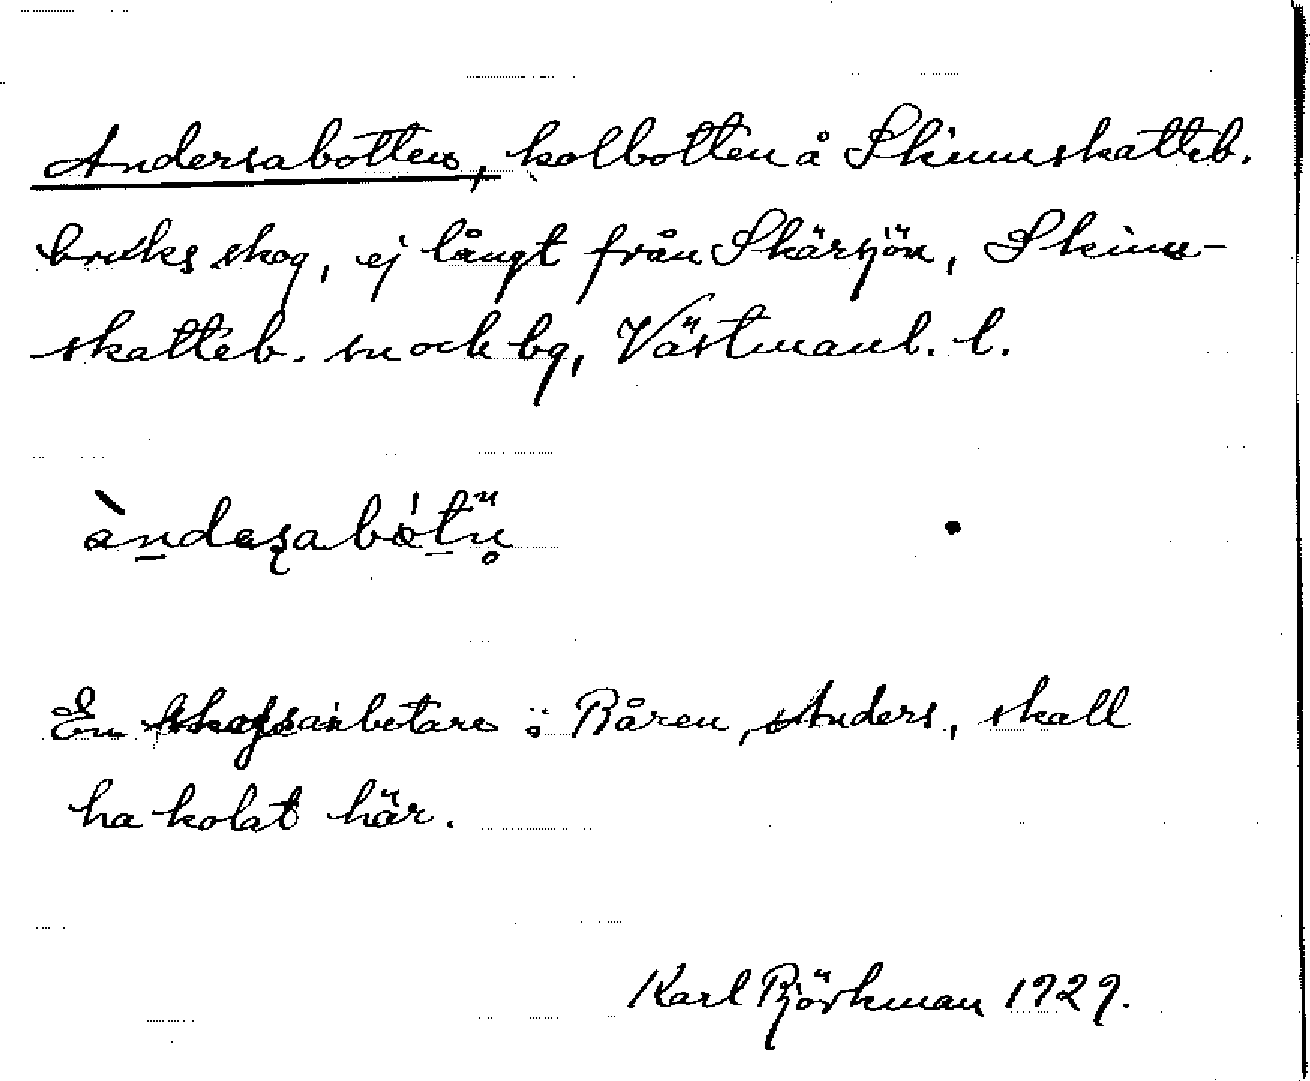 Andersabotten, kolbotten å Skinnskatteb.
bruks skog, ej långt från Skärsjön, Skinn-
skatteb. sn och bg, Västmanl. l.
àndeʂabòtn̥
En skogsarbetare i Båren, Anders, skall
ha kolat här.
Karl Björkman 1929.